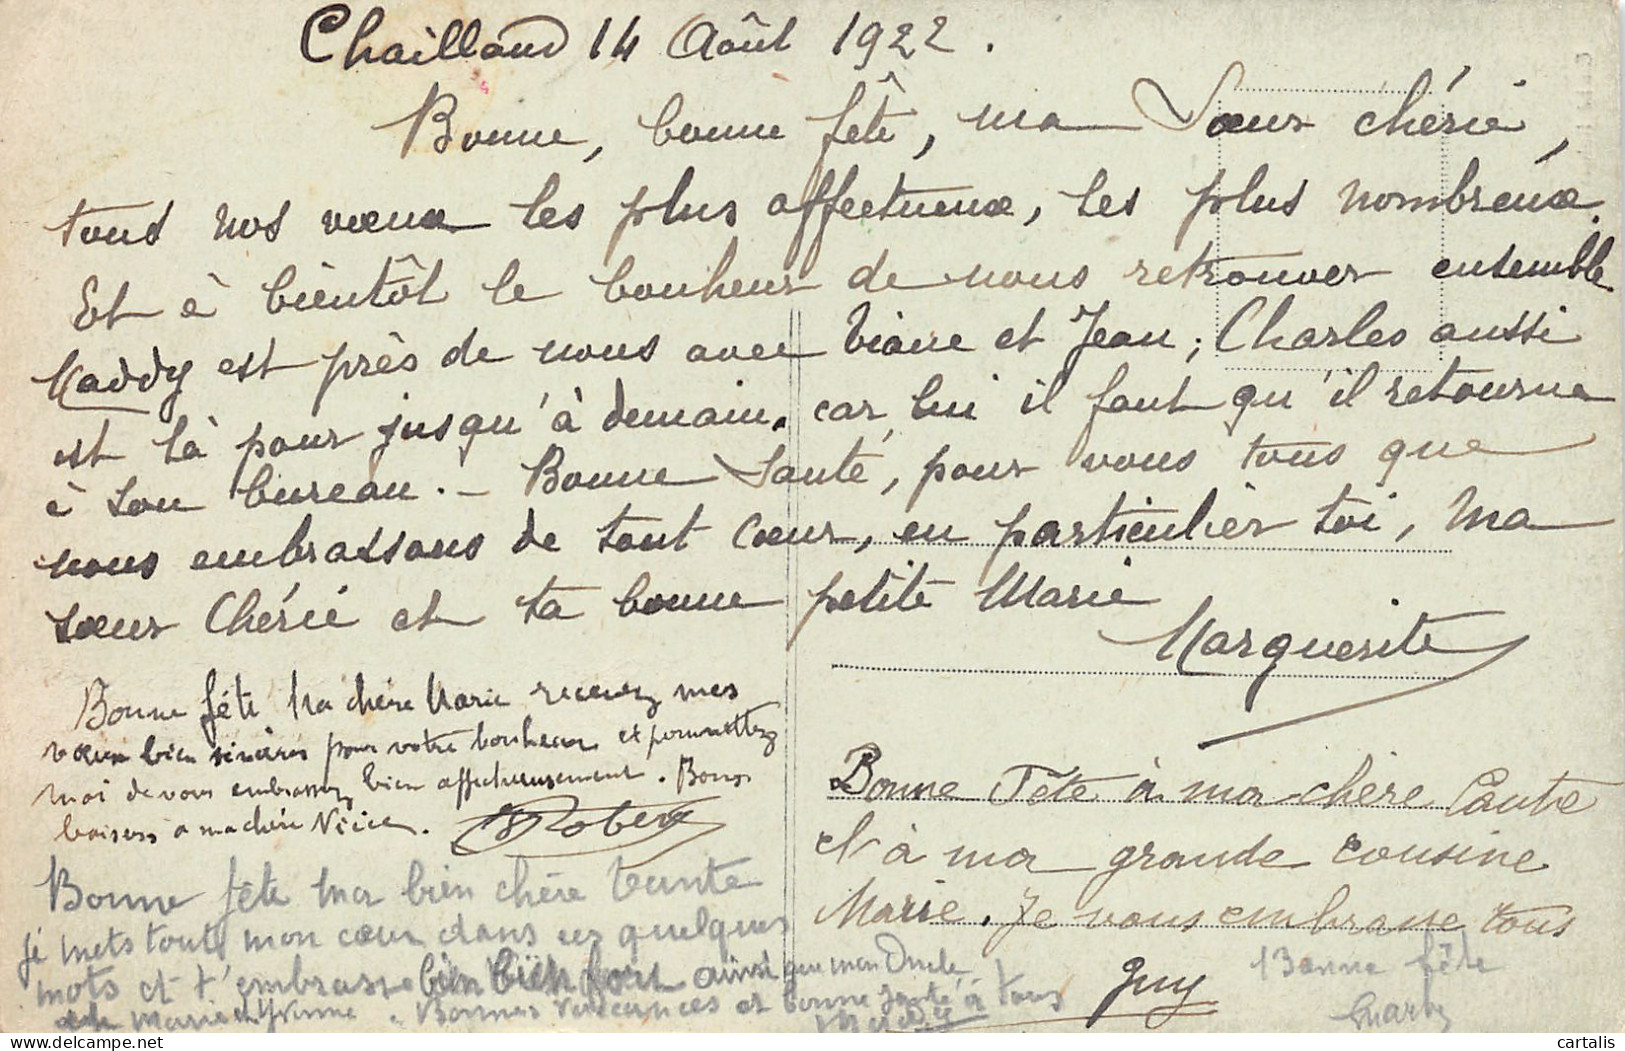 Chailland 14 Août 1922.
Bonne, bonne fête, ma Sœur chérie,
tous nos vœux les plus affectueux, les plus nombreux.
Et à bientôt le bonheur de nous retrouver ensemble
Maddy est près de nous avec Viane et Jean; Charles aussi
est là pour jusqu'à demain, car lui il faut qu'il retourne
à son bureau. - Bonne Santé, pour vous tous que
nous embrassons de tout cœur, en particulier toi, ma
sœur Chérie et ta bonne petite Marie
Marguerite
Bonne fête Ma chère Marie recevez mes
vœux bien sincères pour votre bonheur et permettez
moi de vous embrasser bien affectueusement. Bons
baisers à ma chère Nièce.
Robert
Bonne Fête à ma chère Tante
et à ma grande cousine
Marie. Je vous embrasse tous
Guy
Bonne fête ma bien chère tante
je mets tout mon cœur dans ces quelques
mots et t'embrasse bien bien fort ainsi que mon Oncle
Marie et Yvonne. Bonnes vacances et bonne santé à tous
Maddy
Bonne fête
Charly
cartalis